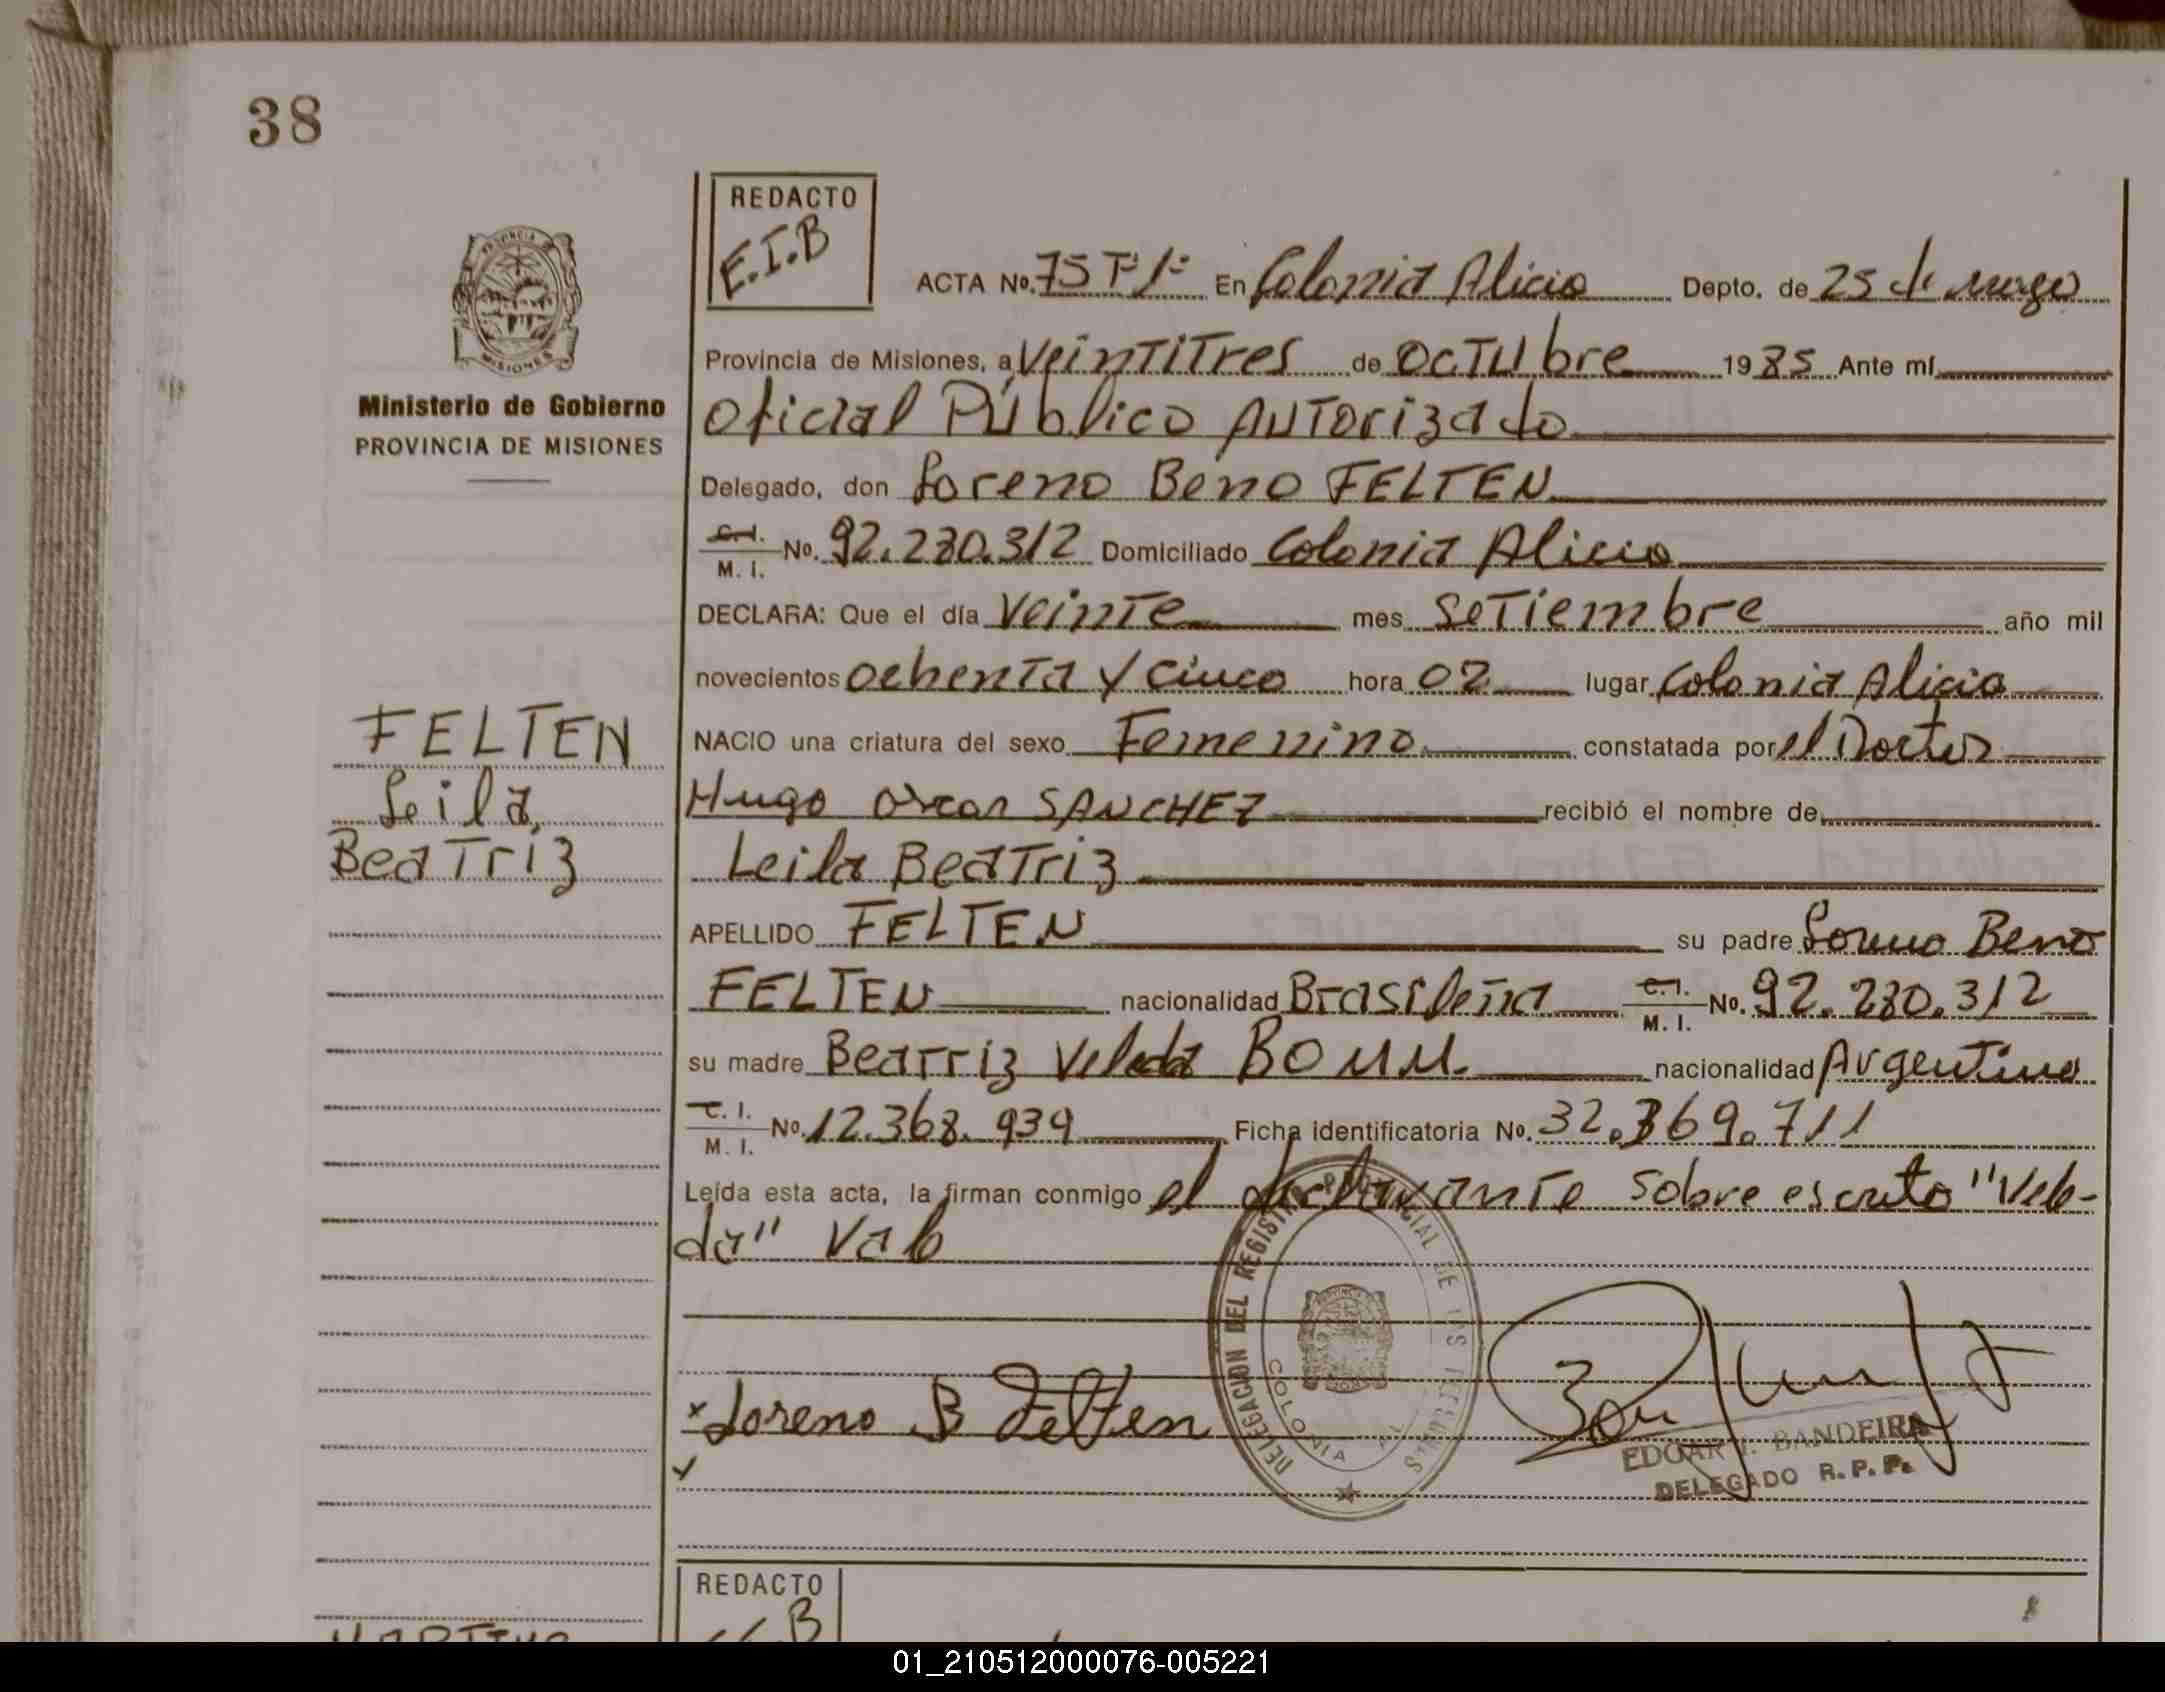 38
REDACTO
E.I.B
PROVINCIA DE
MISIONES
Ministerio de Gobierno
PROVINCIA DE MISIONES
ACTA No. 75 Tº 1º En Colonia Alicia Depto. de 25 de mayo
Provincia de Misiones, a Veintitres de octubre 1985 Ante mí
oficial Público Autorizado
Delegado, don Loreno Beno FELTEN
C.I. M.I. No. 92.280.312 Domiciliado Colonia Alicia
DECLARA: Que el día veinte mes setiembre año mil
novecientos ochenta y cinco hora 02 lugar Colonia Alicia
NACIO una criatura del sexo Femenino constatada por el Doctor
Hugo Oscar SANCHEZ recibió el nombre de
Leila Beatriz
APELLIDO FELTEN su padre Loreno Beno
FELTEN nacionalidad Brasileña C.I. M.I. No. 92.280.312
su madre Beatriz Veleda nacionalidad Argentina
C.I. M.I. No. 12.368.939 Ficha identificatoria No. 32.369.711
Leída esta acta, la firman conmigo el declarante sobre escrito "Vele-
da" Vale
FELTEN
Leila
Beatriz
DELEGACION DEL REGISTRO PROVINCIAL DE LAS PERSONAS
COLONIA AL
Loreno B Felten
EDGAR I. BANDEIRA
DELEGADO R.P.P.
REDACTO
01_210512000076-005221